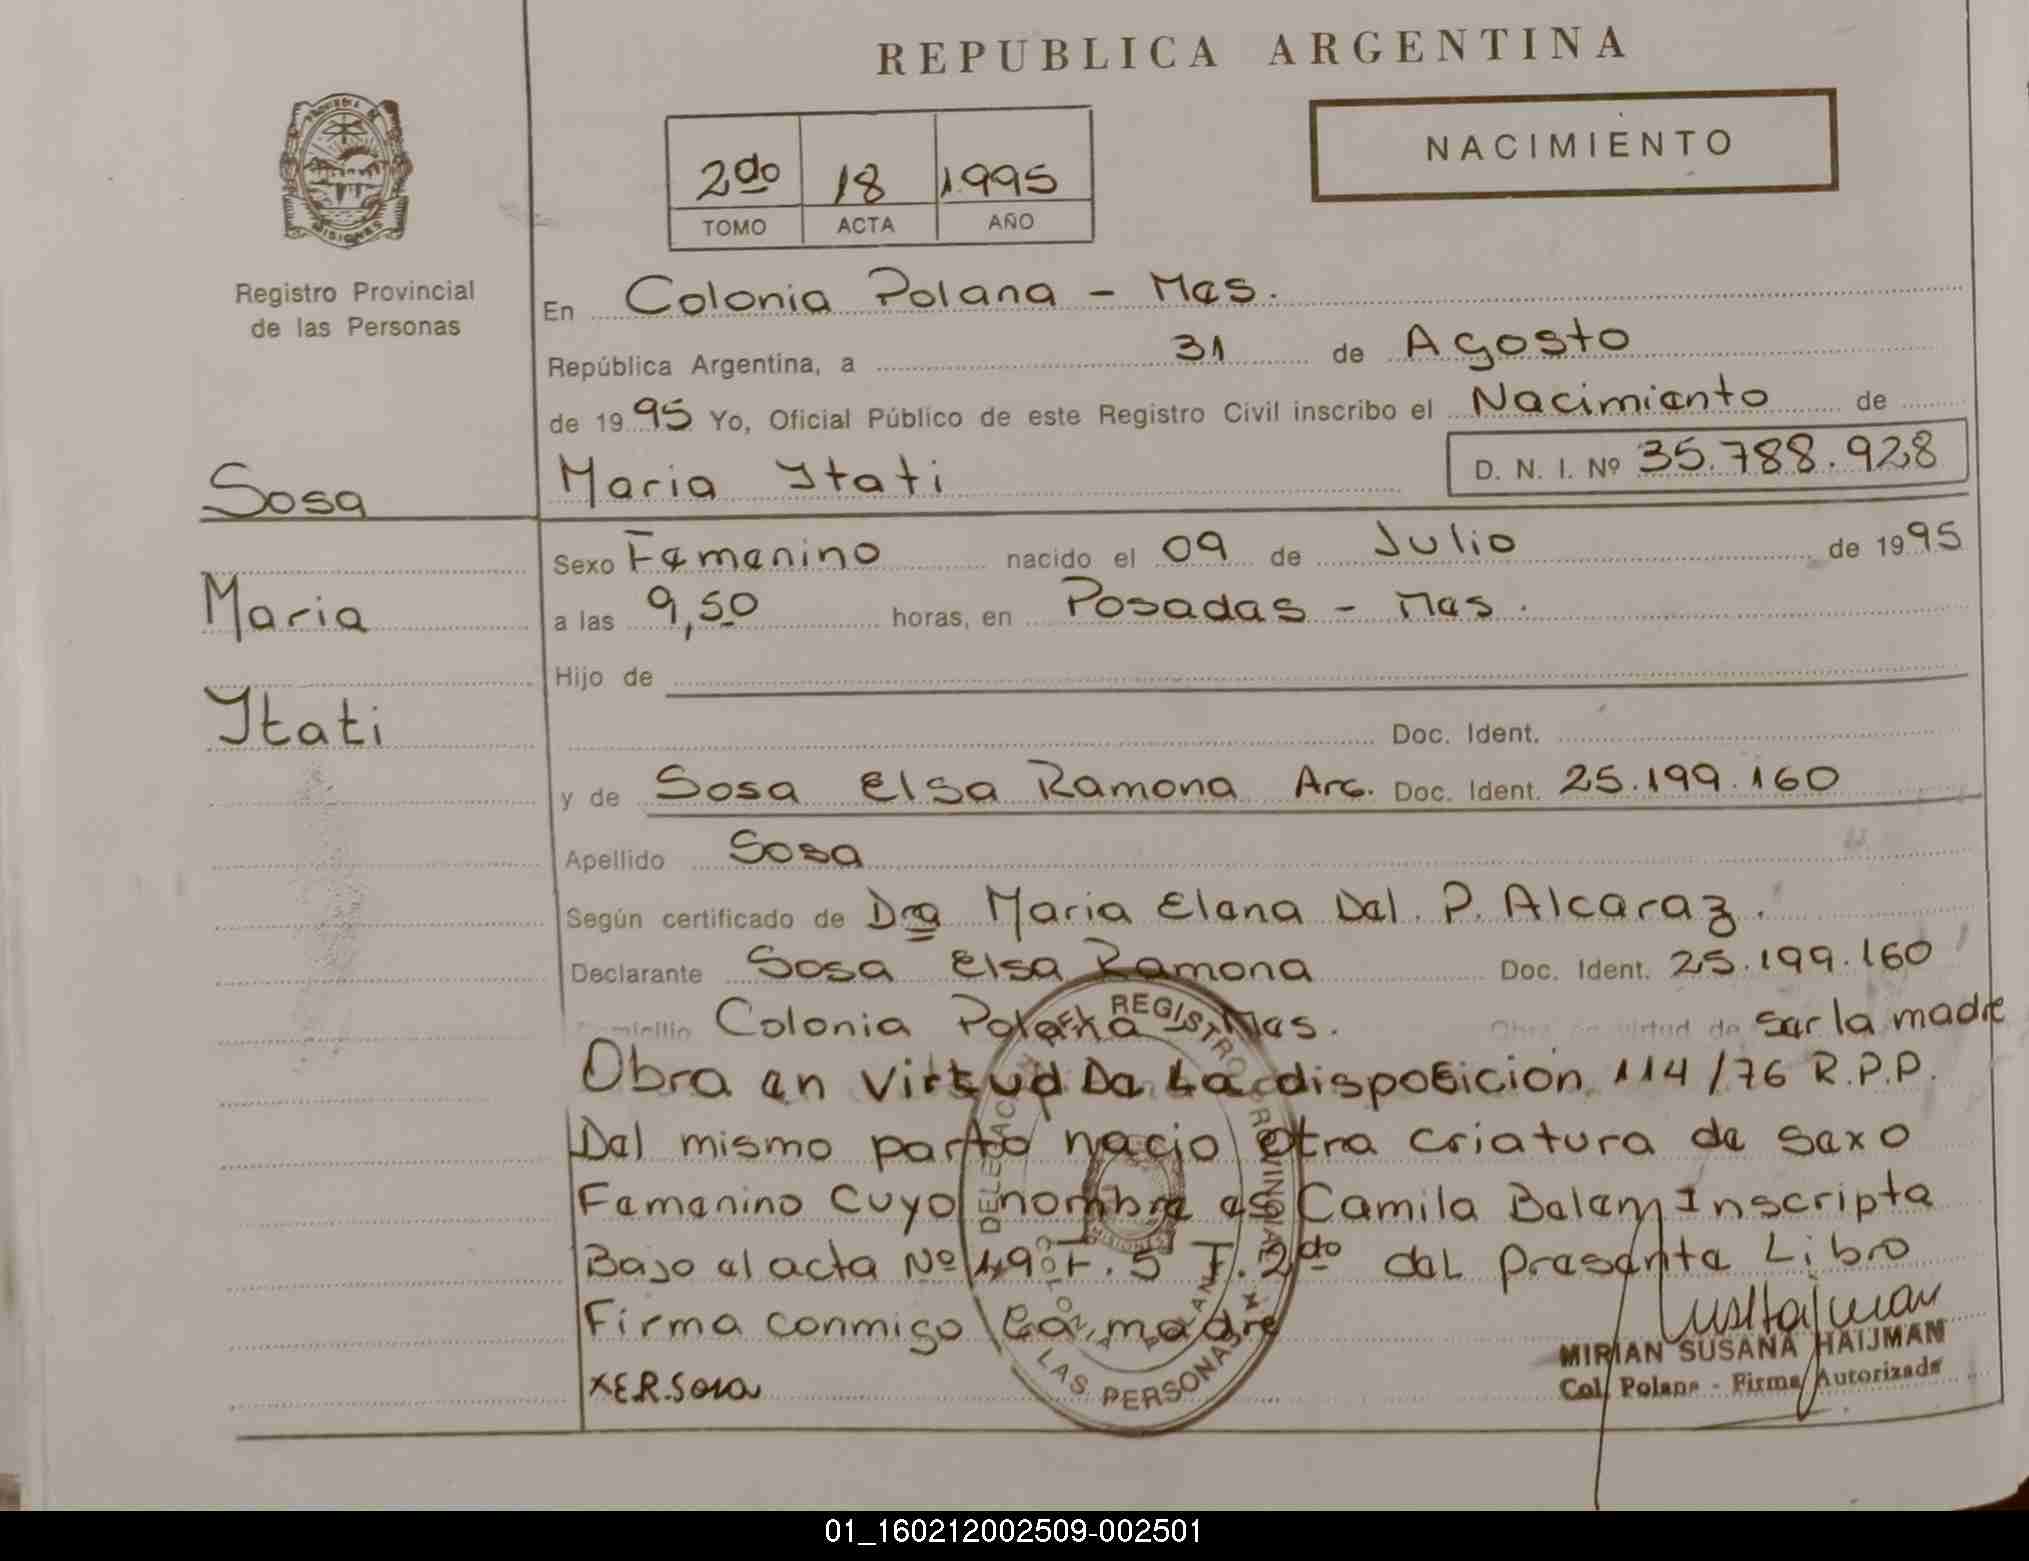 REPUBLICA ARGENTINA
PROVINCIA DE
MISIONES
Registro Provincial
de las Personas
2do 18 1995
TOMO ACTA AÑO
NACIMIENTO
En Colonia Polana - Mes.
República Argentina, a 31 de Agosto
de 1995 Yo, Oficial Público de este Registro Civil inscribo el Nacimiento de
Sosa
Maria Itati D. N. I. Nº 35.788.928
Sexo Femenino nacido el 09 de Julio de 1995
Maria
a las 9,50 horas, en Posadas - Mes.
Hijo de
Itati
Doc. Ident.
y de Sosa Elsa Ramona Arg. Doc. Ident. 25.199.160
Apellido Sosa
Según certificado de Dra Maria Elena Del. P. Alcaraz.
Declarante Sosa Elsa Ramona Doc. Ident. 25.199.160
Domicilio Colonia Polana Mes. Obra en virtud de ser la madre
Obra en virtud De La disposición 114/76 R.P.P.
Del mismo parto nacio otra criatura de sexo
Femenino cuyo nombre es Camila Belen Inscripta
Bajo el acta Nº F. 5 T. 2do del presente Libro
Firma conmigo La madre
X E.R. Sosa
DELEGACION DEL REGISTRO PROVINCIAL
DE LAS PERSONAS
COLONIA POLANA
MISIONES
MIRIAN SUSANA HAIJMAN
Col. Polana - Firma Autorizada
01_160212002509-002501